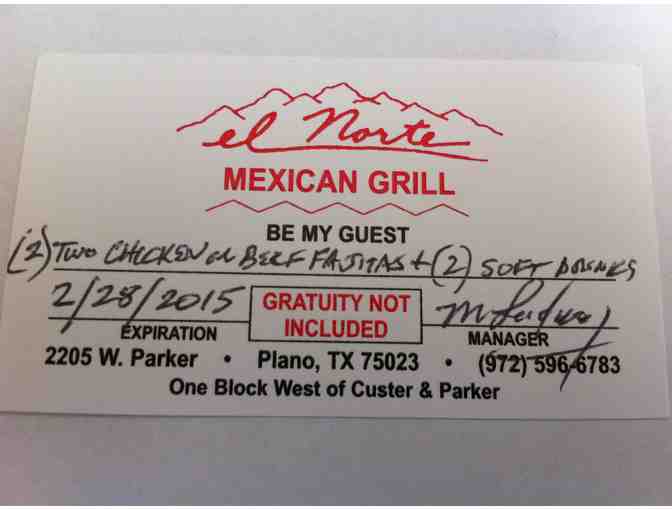 el Norte
MEXICAN GRILL
BE MY GUEST
(2) TWO CHICKEN OR BEEF FAJITAS + (2) SOFT DRINKS
2/28/2015
GRATUITY NOT
INCLUDED
EXPIRATION
MANAGER
2205 W. Parker • Plano, TX 75023 • (972) 596-6783
One Block West of Custer & Parker